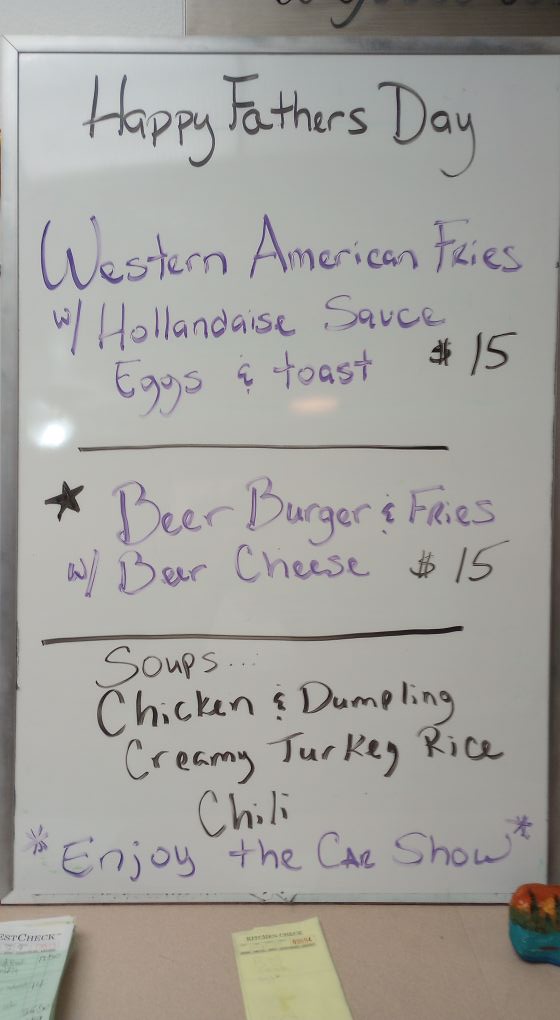 Happy Fathers Day
Western American Fries
w/ Hollandaise Sauce
Eggs & toast $15
★ Beer Burger & Fries
w/ Beer Cheese $15
Soups...
Chicken & Dumpling
Creamy Turkey Rice
Chili
* Enjoy the Car Show *
ESTCHECK
KITCHEN CHECK